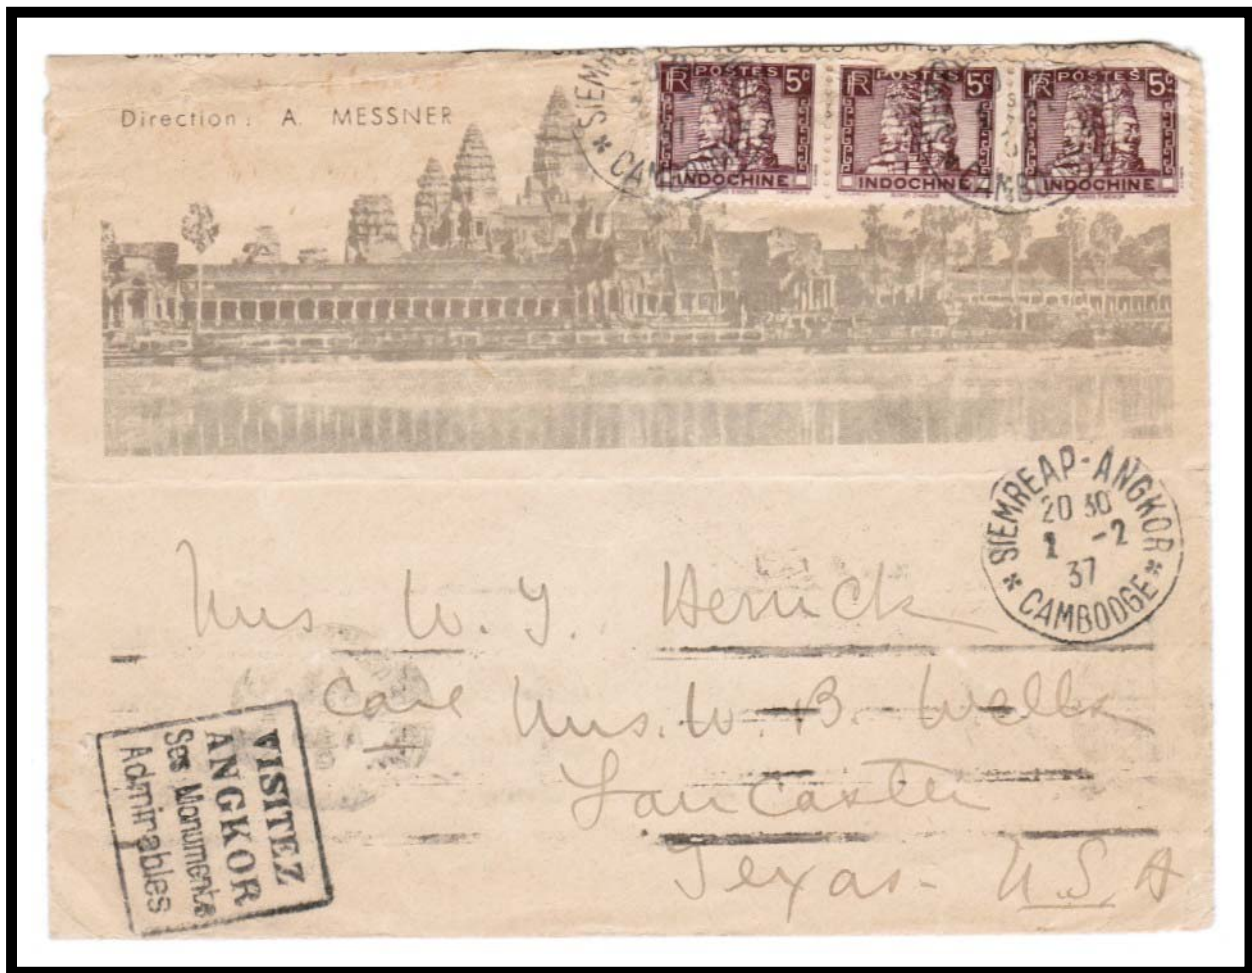 HOTEL DES RUINES
Direction : A. MESSNER
SIEMR
* CAMBODGE
RF POSTES 5c
INDOCHINE
RF POSTES 5c
INDOCHINE
RF POSTES 5c
INDOCHINE
CAMBO
SIEMREAP-ANGKOR
20 30
-2
37
* CAMBODGE *
Mrs. W. J. Herrick
Care Mrs. W. B. Wells
Lancaster
Texas - U.S.A
VISITEZ
ANGKOR
Ses Monuments
Admirables